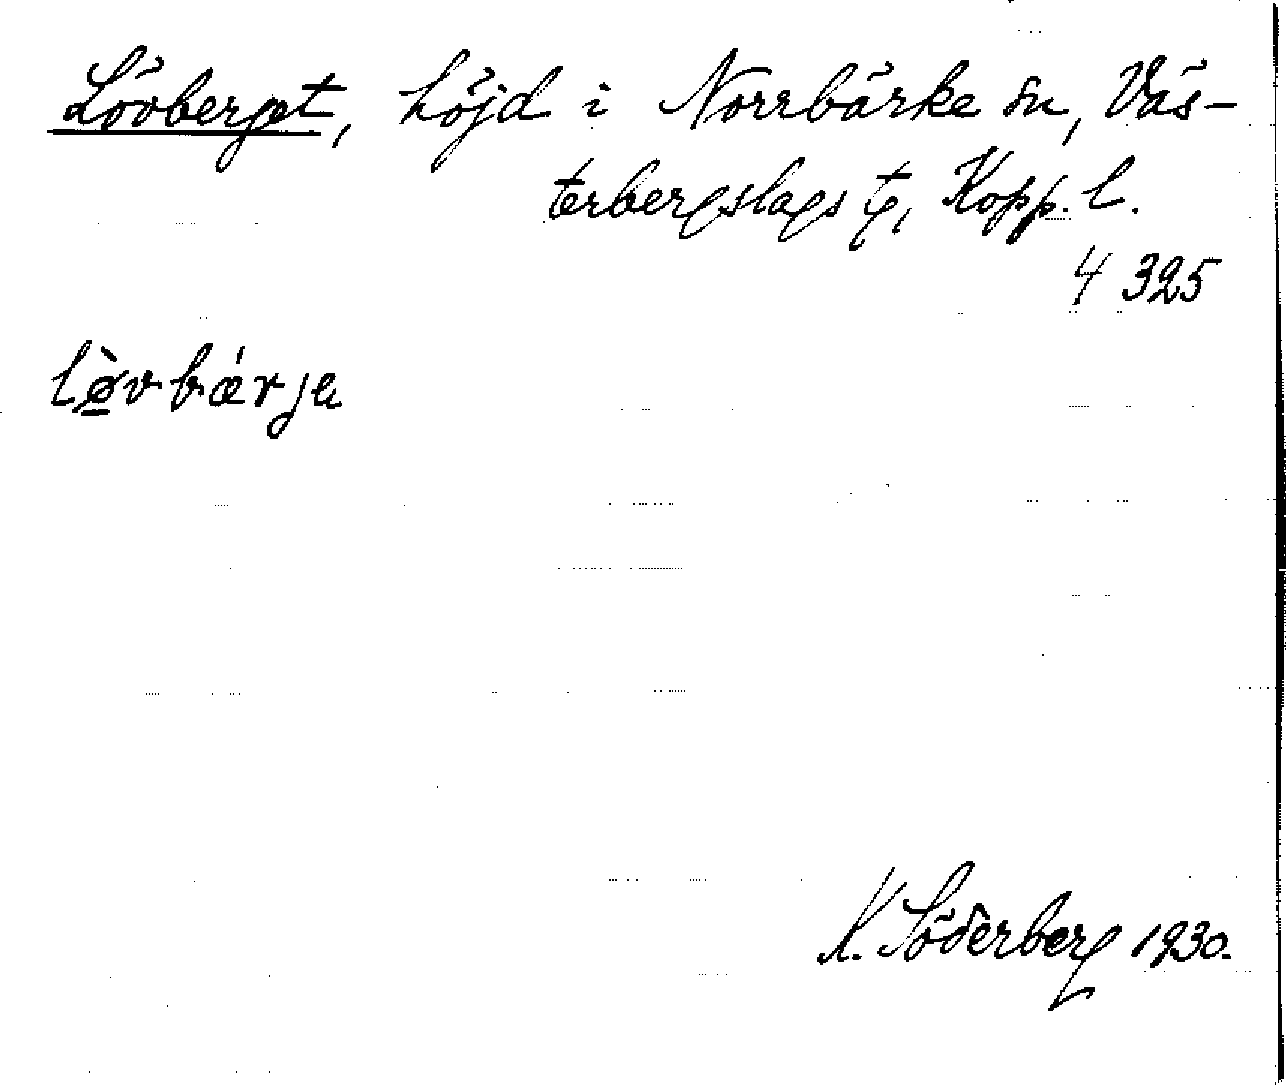 Lövberget, höjd i Norrbärke sn, Väs-
terbergslags tg, Kopp. l.
4 325
lø̀vbǽrja
K. Söderberg 1930.